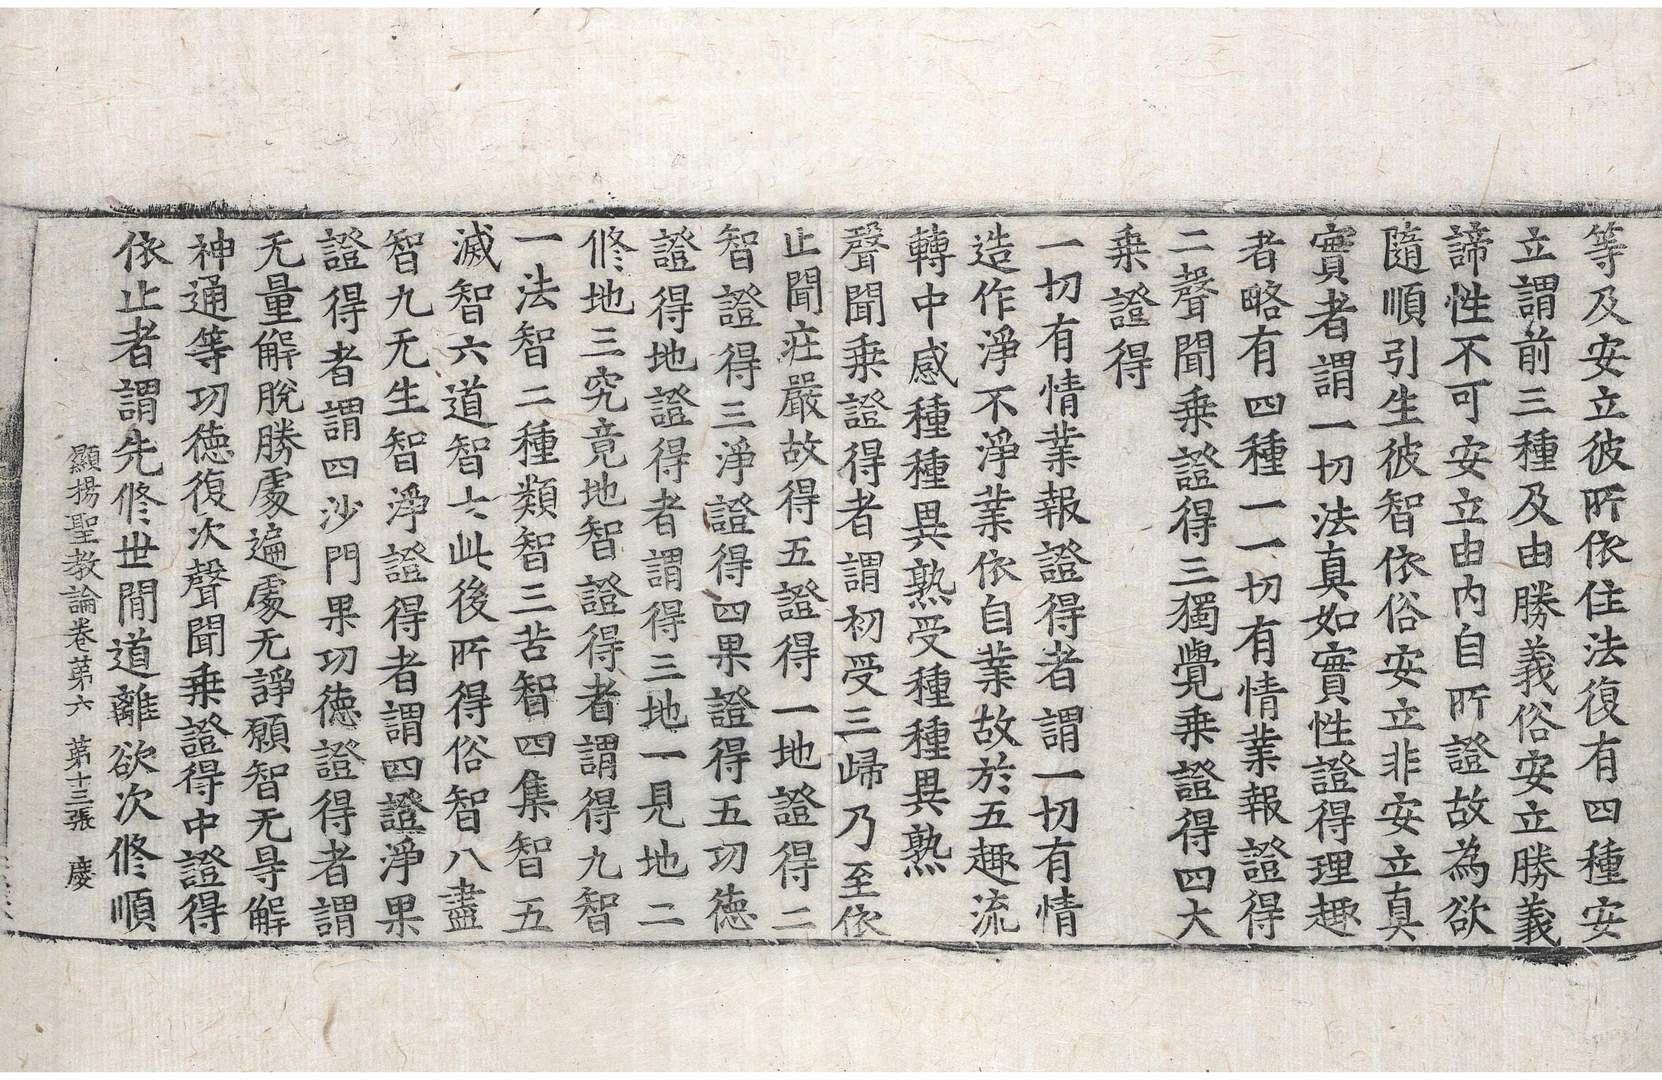 等及安立彼所依住法復有四種安
立謂前三種及由勝義俗安立勝義
諦性不可安立由内自所證故為欲
隨順引生彼智依俗安立非安立真
實者謂一切法真如實性證得理趣
者略有四種一一切有情業報證得
二聲聞乗證得三獨覺乗證得四大
乗證得
一切有情業報證得者謂一切有情
造作淨不淨業依自業故於五趣流
轉中感種種異熟受種種異熟
聲聞乗證得者謂初受三歸乃至依
止聞莊嚴故得五證得一地證得二
智證得三淨證得四果證得五功德
證得地證得者謂得三地一見地二
修地三究竟地智證得者謂得九智
一法智二種類智三苦智四集智五
滅智六道智七此後所得俗智八盡
智九无生智淨證得者謂四證淨果
證得者謂四沙門果功德證得者謂
无量解脫勝處遍處无諍願智无㝵解
神通等功德復次聲聞乗證得中證得
依止者謂先修世間道離欲次修順
顯揚聖教論卷第六 第十三張 慶